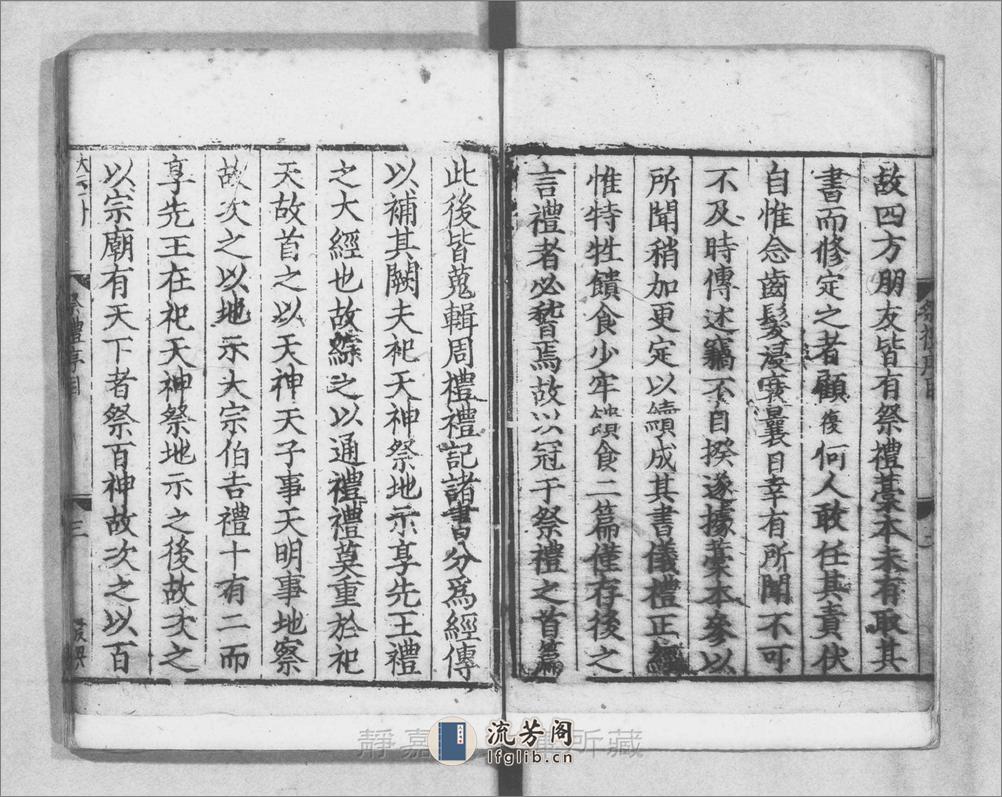 故四方朋友皆有祭禮藁本未有取其
書而修定之者顧後何人敢任其責伏
自惟念齒髮浸衰曩日幸有所聞不可
不及時傳述竊不自揆遂據藁本參以
所聞稍加更定以續成其書儀禮正經
惟特牲饋食少牢饋食二篇僅存後之
言禮者必稽焉故以冠于祭禮之首篇
此後皆蒐輯周禮禮記諸書分為經傳
以補其闕夫祀天神祭地示享先王禮
之大經也故綜之以通禮禮莫重於祀
天故首之以天神天子事天明事地察
故次之以地示大宗伯吉禮十有二而
享先王在祀天神祭地示之後故次之
以宗廟有天下者祭百神故次之以百
祭禮序目
三
靜嘉
所藏
流芳阁
lfglib.cn